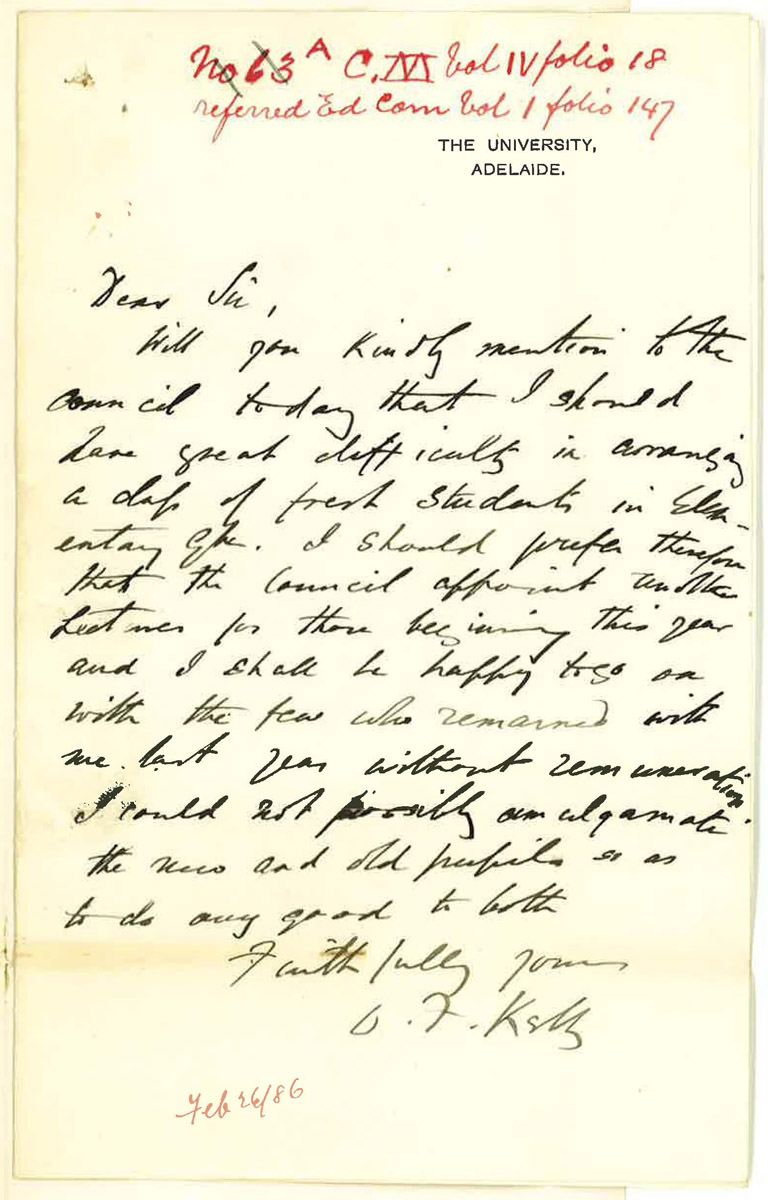 No 63 A C. Vol IV folio 18
referred Ed Com Vol 1 folio 147
THE UNIVERSITY,
ADELAIDE.
Dear Sir,
Will you kindly mention to the
council today that I should
have great difficulty in arranging
a class of fresh students in Elem-
entary Gk. I should prefer therefore
that the Council appoint another
Lecturer for those beginning this year
and I shall be happy to go on
with the few who remained with
me last year without remuneration.
I could not possibly amalgamate
the new and old pupils so as
to do any good to both
Faithfully yours
D. F. Kelly
Feb 26/86